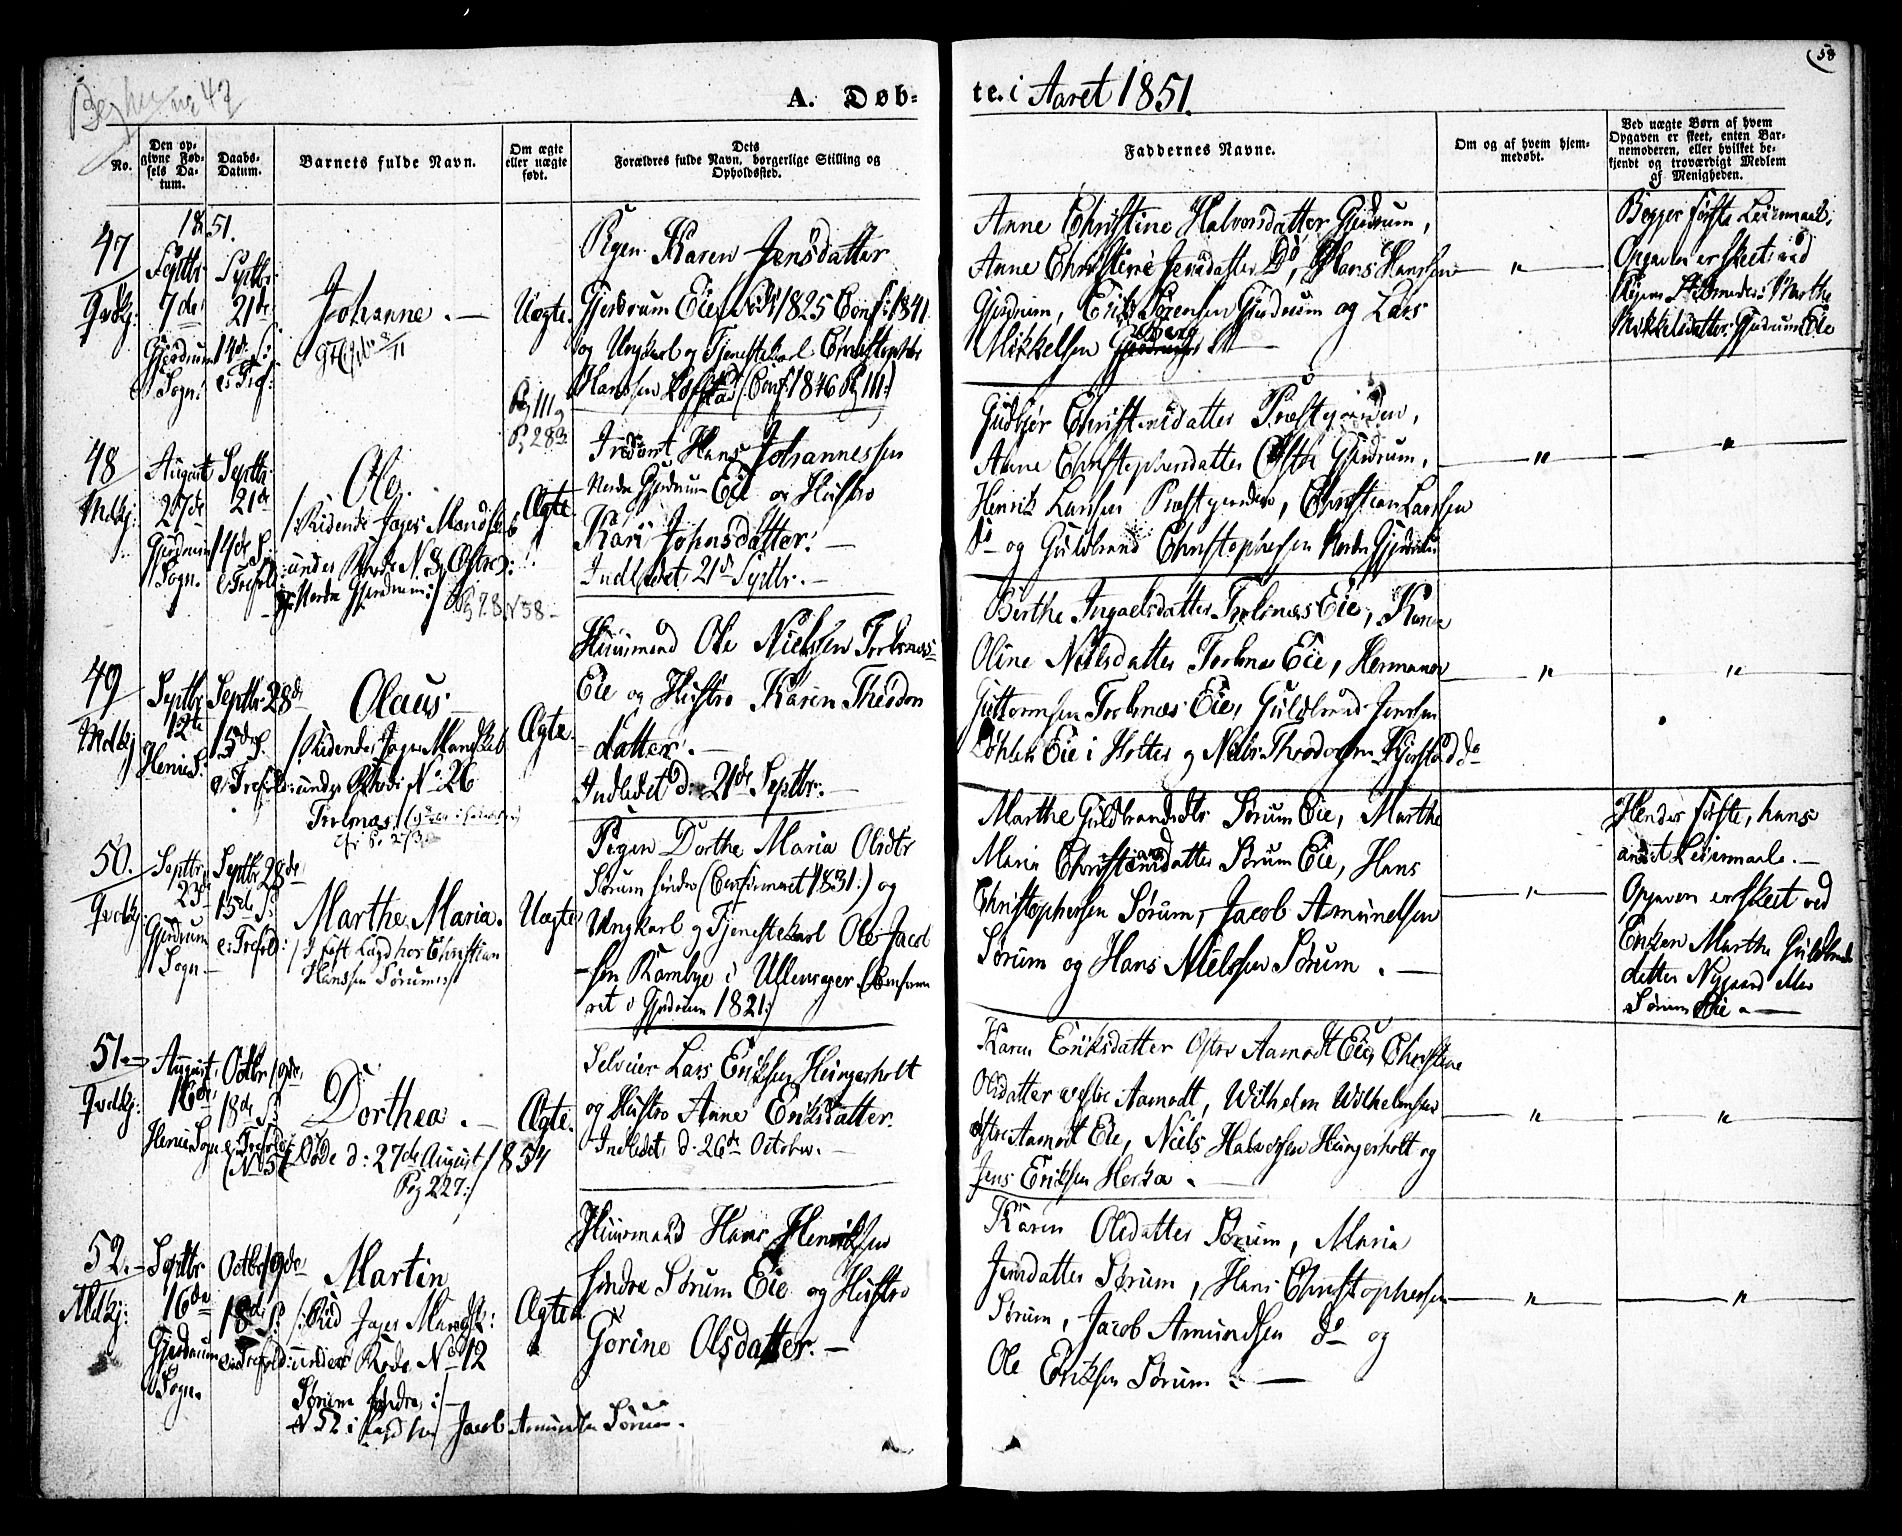 58
A. Døb-
te. i Aaret 1851.
No.
Den op-
givne Fød-
sels Da-
tum.
Daabs-
Datum.
Barnets fulde Navn.
Om ægte
eller uægte
født.
Dets
Forældres fulde Navn, borgerlige Stilling og
Opholdssted.
Faddernes Navne.
Om og af hvem hjem-
medøbt.
Ved uægte Børn af hvem
Opgaven er skeet, enten Bar-
nemoderen, eller hvilket be-
kjendt og troværdigt Medlem
af Menigheden.
47
Qvdkj:
1851.
Septbr
7de
Gjerdrum
Sogn.
Septbr
21de
14de S:
e: Tref:
Johanne. —
Uægte.
Pigen Karen Jensdatter
Gjerdrum Eie, født 1825 Conf: 1841
og Ungkarl og Tjenestekarl Christopher
Hanssen (Conf: 1846 Pg 111:)
Pg 111
Pg 283
Anne Christine Halvorsdatter Gjerdrum,
Anne Christine Jensdatter Do, Hans Hanssen
Gjerdrum, Erik Sørensen Gjerdrum og Lars
Mikkelsen
"
Begges første Leiermaal.
Opgaven er skeet ved
Marthe
Mikkelsdatter Gjerdrum Eie
48
Mdkj:
August
27de
Gjerdrum
Sogn.
Septbr
21de
14de S:
e: Trefold:
Ole.
/: Ridende Jæger Mandskab
under Rode N 8 Østre
Nordre Gjerdrum :/
Pg 98 N 58
Ægte
Hans Johannessen
Nordre Gjerdrum Eie og Hustro
Kari Johnsdatter. —
Indledet 21de Septbr. —
Gudbjør Christensdatter Præstgaarden,
Anne Christophersdatter Østre Gjerdrum,
Henrik Larssen Præstgaarden, Christian Larssen
do og Guldbrand Christophersen Nordre Gjerdrum
"
"
49
Mdkj
Septbr
12te
Heni S:
Septbr 28de
15de S.
e: Trefold:
Olaus
/: Ridende Jæger Mandskab
under Rode No 26
Ægte
Huusmand Ole Nielsen
Eie og Hustro Karen Theodor
datter. —
Indledet d: 21de Septbr. —
Berthe Eie, Karen
Oline Nielsdatter Eie, Hermann
Guttormsen Eie, Guldbrand Jenssen
Eie i Holter og Niels do
"
"
50.
Qvdkj:
Septbr
23de
Gjerdrum
Sogn
Septbr 28de
15de S:
e: Trefold:
Marthe Maria.
/: I fast Lægd hos Christian
Hanssen Sørum :/
Uægte
Pigen Dorthe Maria Olsdtr
Sørum søndre (Confirmeret 1831:) og
Ungkarl og Tjenestekarl Ole Jacob
sen Rambye i Ullensager (Confirme
ret i Gjerdrum 1821:)
Marthe Guldbrandsdtr Sørum Eie, Marthe
Maria Christiansdatter Sørum Eie, Hans
Christophersen Sørum, Jacob Amundsen
Sørum og Hans Nielssen Sørum. —
"
Hendes første, hans
andet Leiermaal. —
Opgaven er skeet ved
Enken Marthe Guldbrands
datter Nygaard eller
Sørum Eie. —
51.
Qvdkj:
August
16de
Heni Sogn
Octbr 19de
18de S:
e: Trefold:
Dorthea. —
Døde d: 27de August 1854
Pag 227:/
Ægte.
Selveier Lars Eriksen Hungerholt
og Hustro Anne Eriksdatter.
Indledet d: 26de October. —
Karen Eriksdatter Østre Aamodt Eie, Christine
Olsdatter vestre Aamodt, Wilhelm Wilhelmsen
østre Aamodt Eie, Niels Halvorsen Hungerholt og
Jens Eriksen Herka.
"
"
52.
Mdkj:
Septbr
16de
Gjerdrum
Sogn.
Octbr 19de
18de S:
Trefold:
Martin
/: Rid Jæger Mandsk:
under Rode No 12
Sørum søndre :/
N 52 i Lægd hos Jacob Amundsen Sørum.
Ægte
Huusmand Hans Henriksen
søndre Sørum Eie og Hustro
Gorine Olsdatter. —
Karen Olsdatter Sørum, Maria
Jensdatter Sørum, Hans Christophersen
Sørum, Jacob Amundsen do og
Ole Eriksen Sørum. —
"
"